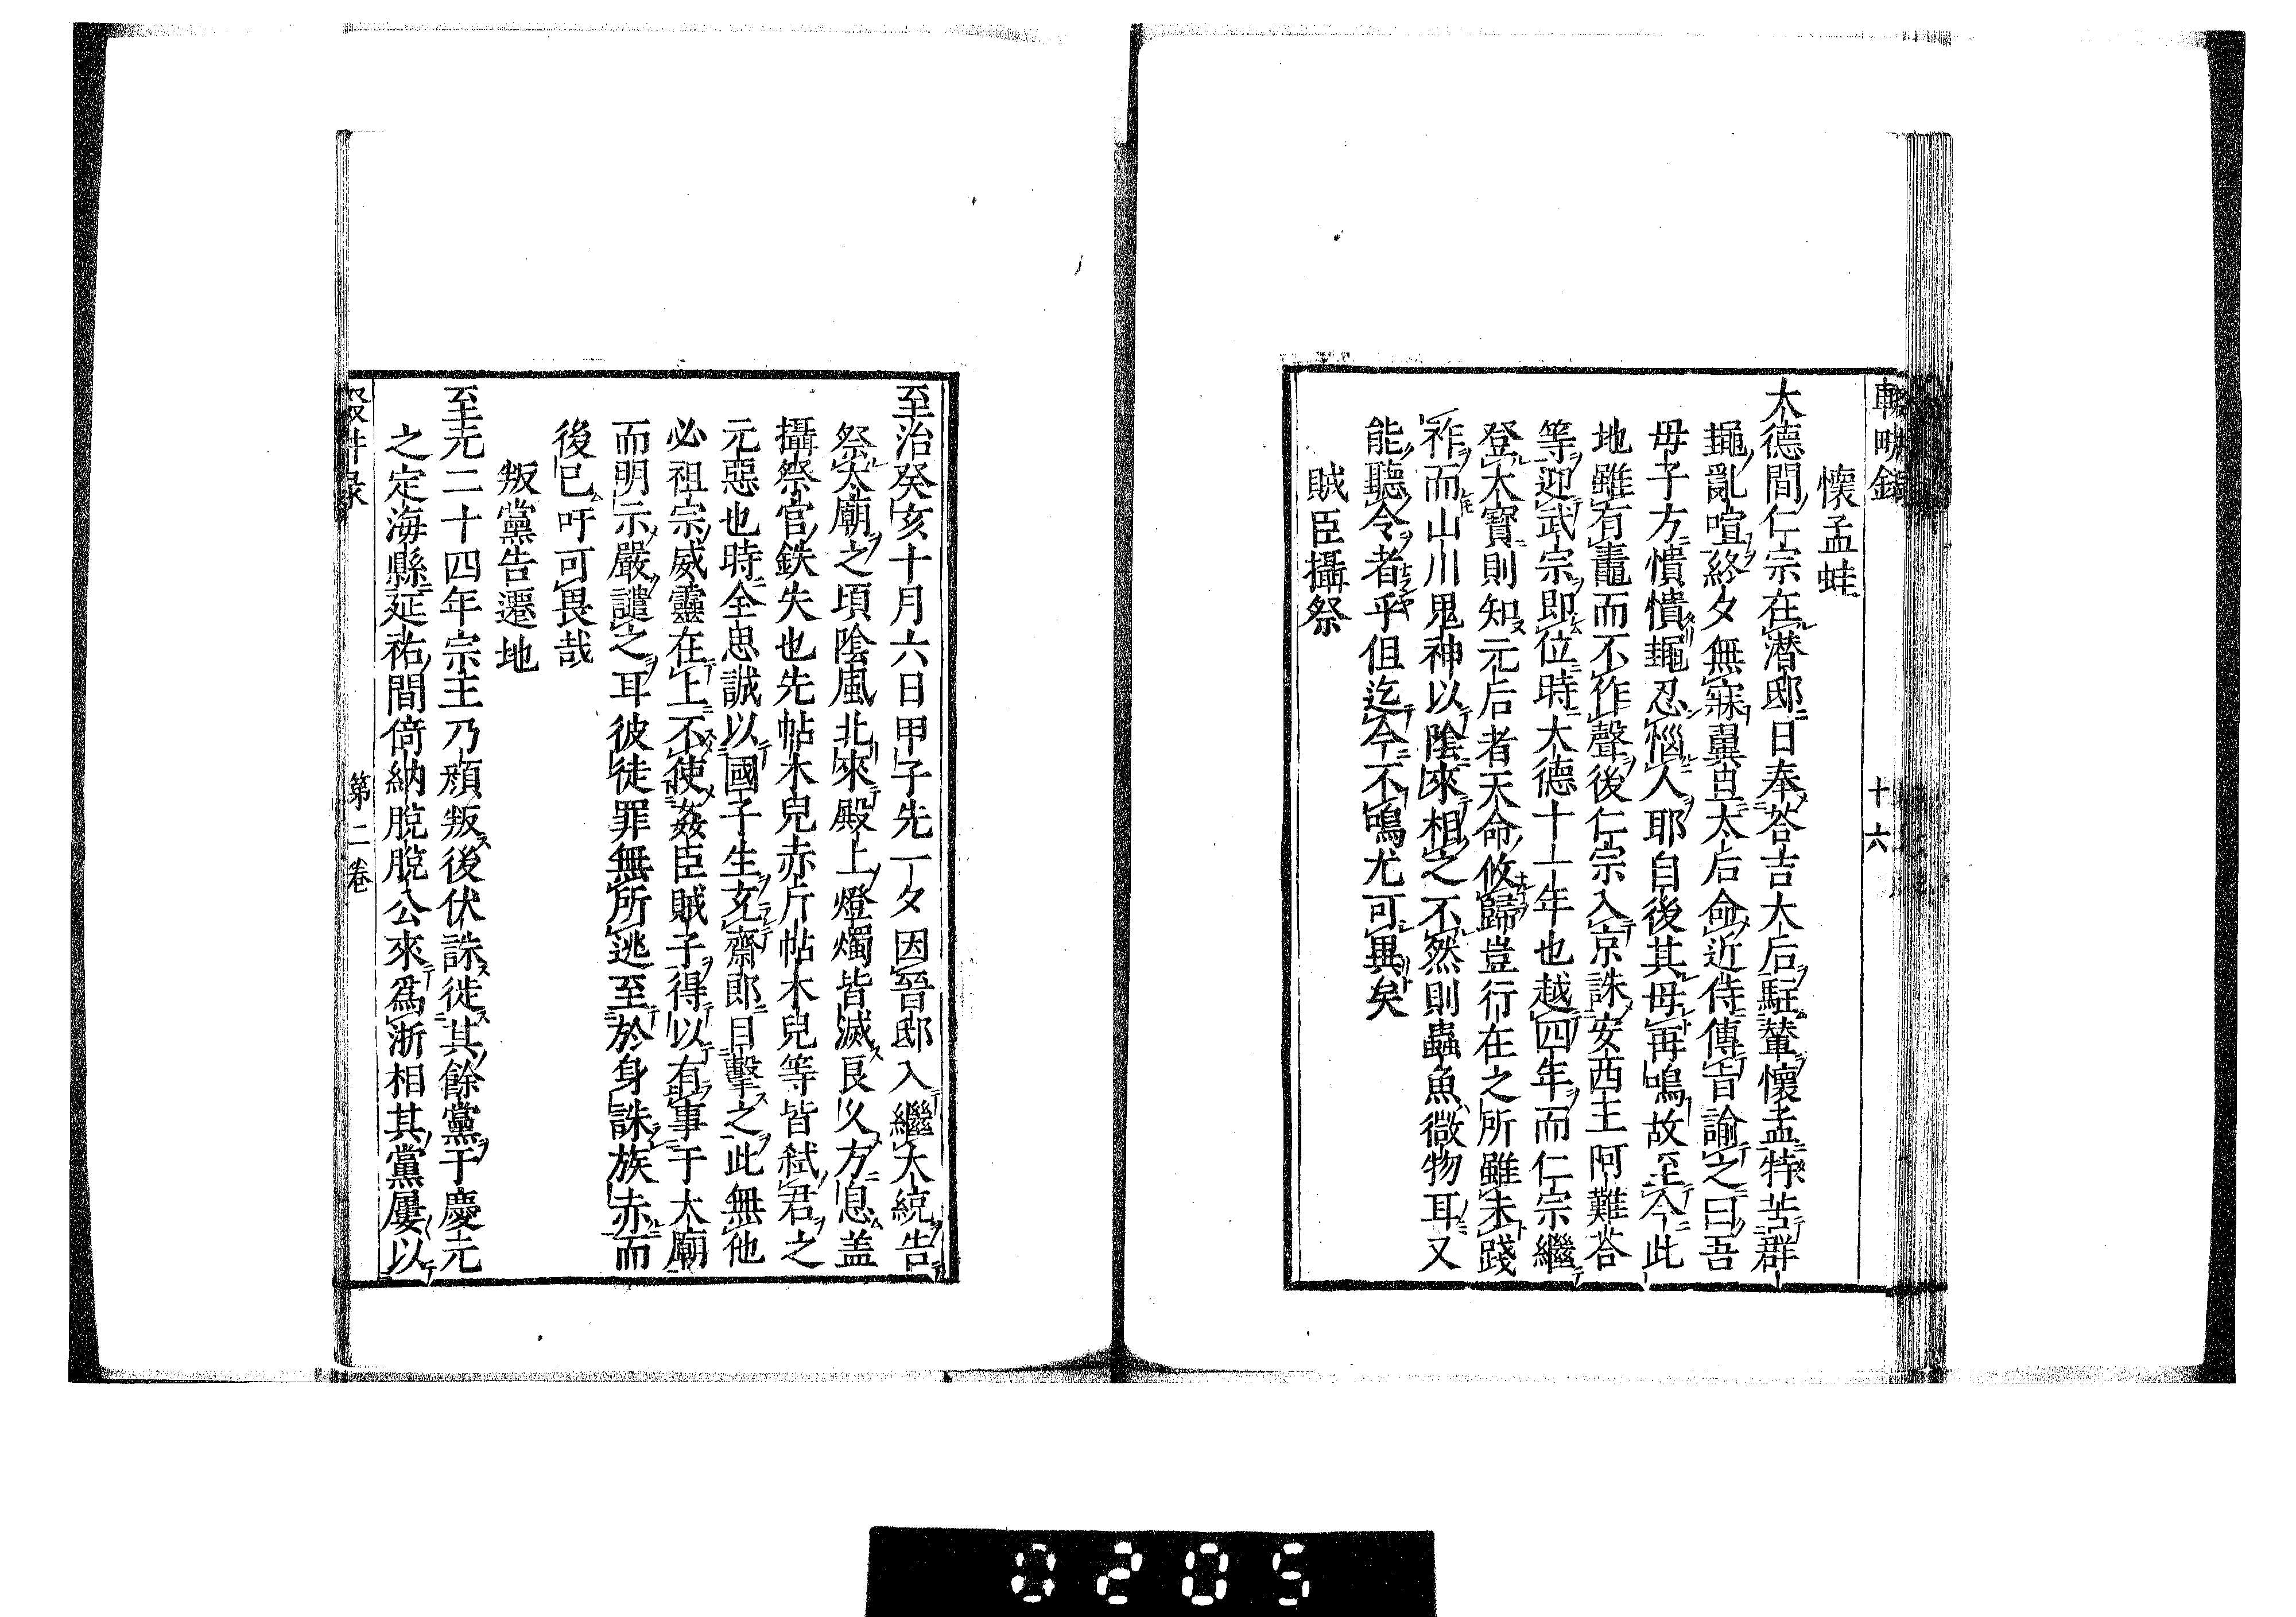 輟畊錄 十六
懷孟蛙
大德間仁宗在潛邸日奉荅吉大后駐輦懷孟特苦群
黽亂喧終夕無寐翼旦太后命近侍傳旨諭之曰吾
母子方憒憒黽忍惱人耶自後其母再鳴故至今此
地雖有鼃而不作聲後仁宗入京誅安西王阿難荅
等迎武宗即位時大德十一年也越四年而仁宗繼
登大寶則知元后者天命攸歸豈行在之所雖未踐
祚而山川鬼神以陰來相之不然則蟲魚微物耳又
能聽令者乎但迄今不鳴尤可異矣
賊臣攝祭
至治癸亥十月六日甲子先一夕因晉邸入繼大統告
祭太廟之頃陰風北來殿上燈燭皆滅良久方息盖
攝祭官鉄失也先帖木兒赤斤帖木兒等皆弑君之
元惡也時全思誠以國子生充齋郎目擊之此無他
必祖宗威靈在上不使姦臣賊子得以有事于大廟
而明示嚴譴之耳彼徒罪無所逃至於身誅族赤而
後已吁可畏哉
叛黨告遷地
至元二十四年宗王乃顏叛後伏誅徙其餘黨于慶元
之定海縣延祐間倚納脫脫公來爲浙相其黨屢以
第二卷
0205